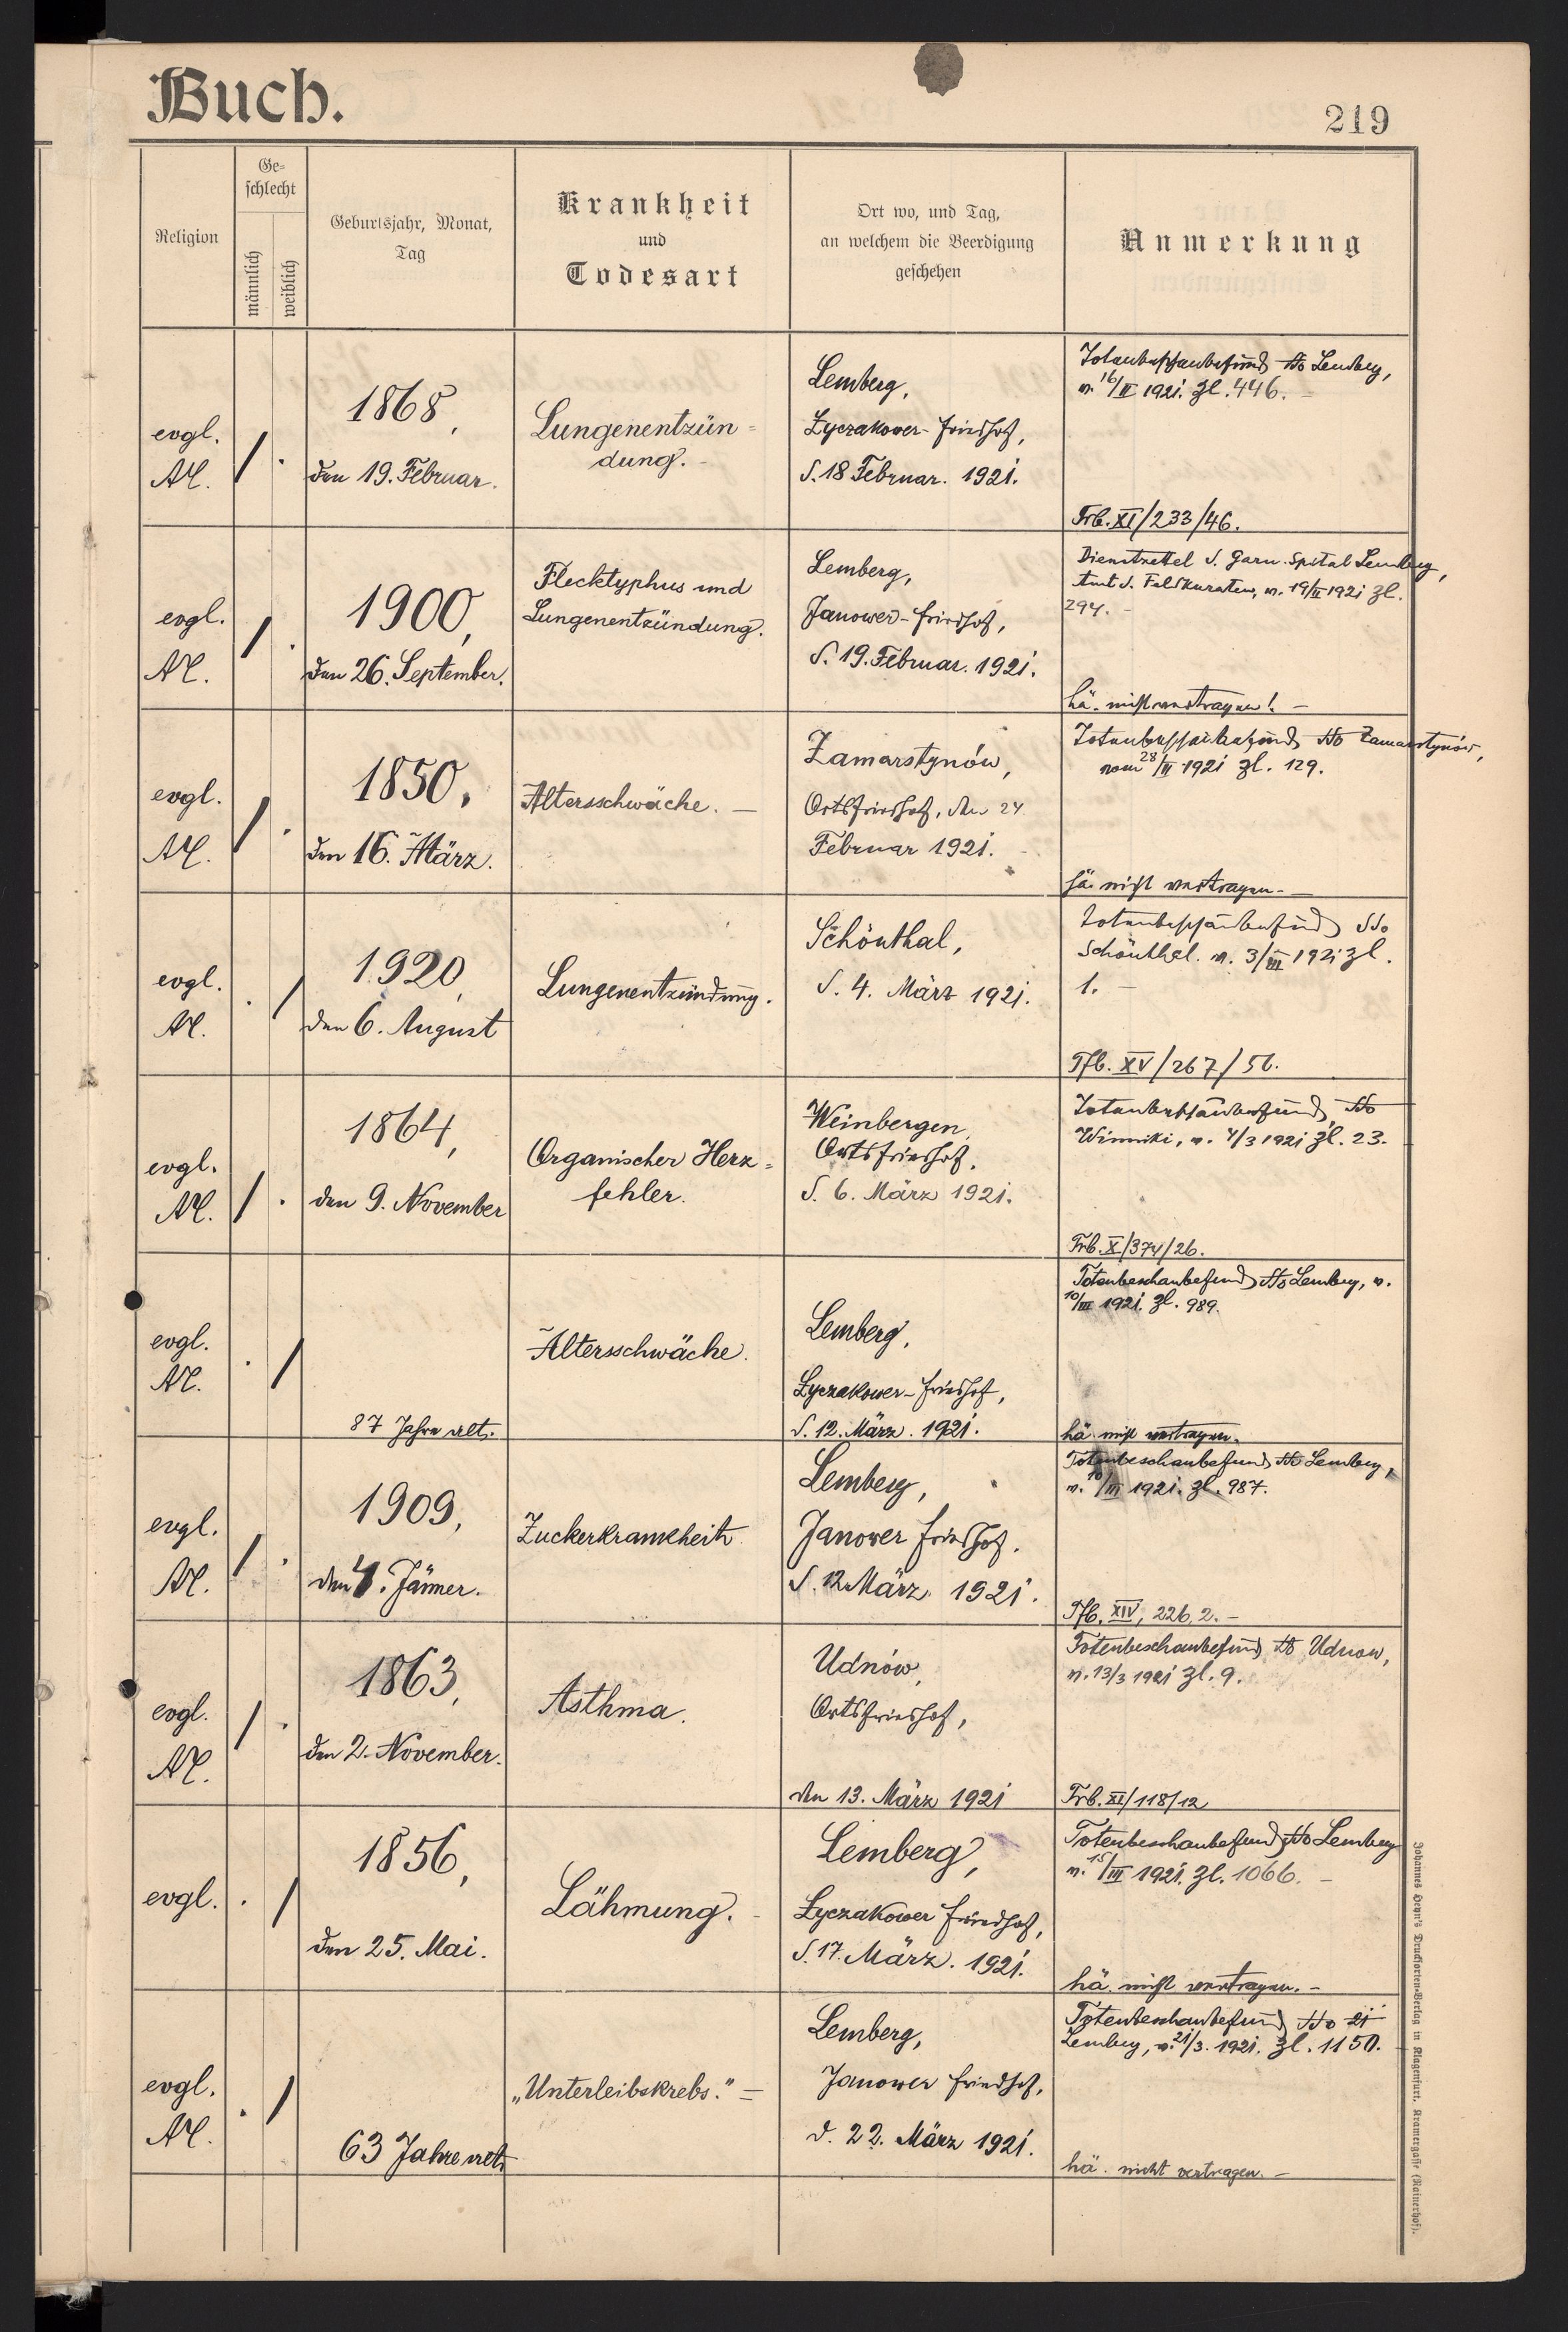 Buch.
219
Religion
Ge-
schlecht
männlich
weiblich
Geburtsjahr, Monat,
Tag
Krankheit
und
Todesart
Ort wo, und Tag,
an welchem die Beerdigung
geschehen
Anmerkung
evgl.
AC.
1868,
den 19. Februar.
Lungenentzün=
dung.
Lemberg,
Łyczakower-Friedhof,
d. 18 Februar. 1921.
Totenbeschaubefund dto Lemberg,
v. 16/II 1921. Zl. 446.
Trb. XI/233/46.
evgl.
AC.
1900,
den 26. September.
Flecktyphus und
Lungenentzündung.
Lemberg,
Janower-Friedhof,
d. 19. Februar. 1921.
Dienstzettel d. Garn. Spital Lemberg,
Amt d. Feldkuraten, v. 19/II 1921 Zl.
294.
hä. nicht vertragen! –
evgl.
AC.
1850,
den 16. März.
Altersschwäche. –
Zamarstynów,
Ortsfriedhof, den 24
Februar 1921.
Totenbeschaubefund dto Zamarstynów,
vom 28/II 1921 Zl. 129.
hä. nicht vertragen. –
evgl.
AC.
1920,
den 6. August
Lungenentzündung.
Schönthal,
d. 4. März 1921.
Totenbeschaubefund dto
Schönthal. v. 3/III 1921 Zl.
1. –
Tfb. XV/267/56.
evgl.
AC.
1864,
den 9. November
Organischer Herz=
fehler.
Weinbergen,
Ortsfriedhof,
d. 6. März 1921.
Totenbeschaubefund dto
Winniki, v. 4/3 1921 Zl. 23.
Trb. X/374/26.
evgl.
AC.
87 Jahre alt.
Altersschwäche.
Lemberg,
Łyczakower-Friedhof,
d. 12. März. 1921.
Totenbeschaubefund dto Lemberg, v.
10/III 1921. Zl. 989.
hä. nicht vertragen.
evgl.
AC.
1909,
Jänner.
Zuckerkrankheit
Lemberg,
Janower Friedhof.
d. 12 März. 1921.
Totenbeschaubefund dto Lemberg,
v. 10/III 1921. Zl. 987.
Tfb. XIV, 226, 2. –
evgl.
AC.
1863,
den 2. November.
Asthma.
Udnów,
Ortsfriedhof,
den 13. März 1921
Totenbeschaubefund dto Udnow,
v. 13/3 1921 Zl. 9.
Trb. XI/118/12
evgl.
1856,
den 25. Mai.
Lähmung.
Lemberg,
Łyczakower Friedhof,
d. 17. März. 1921.
Totenbeschaubefund dto Lemberg
v. 15/III 1921. Zl. 1066. –
hä. nicht vertragen. –
evgl.
AC.
63 Jahre alt.
„Unterleibskrebs." =
Lemberg,
Janower Friedhof,
d. 22. März 1921.
Totenbeschaubefund dto
Lemberg, v. 21/3. 1921. Zl. 1150.
hä. nicht vertragen. –
Johannes Heyn's Drucksorten-Verlag in Klagenfurt, Kramergasse (Rainerhof).